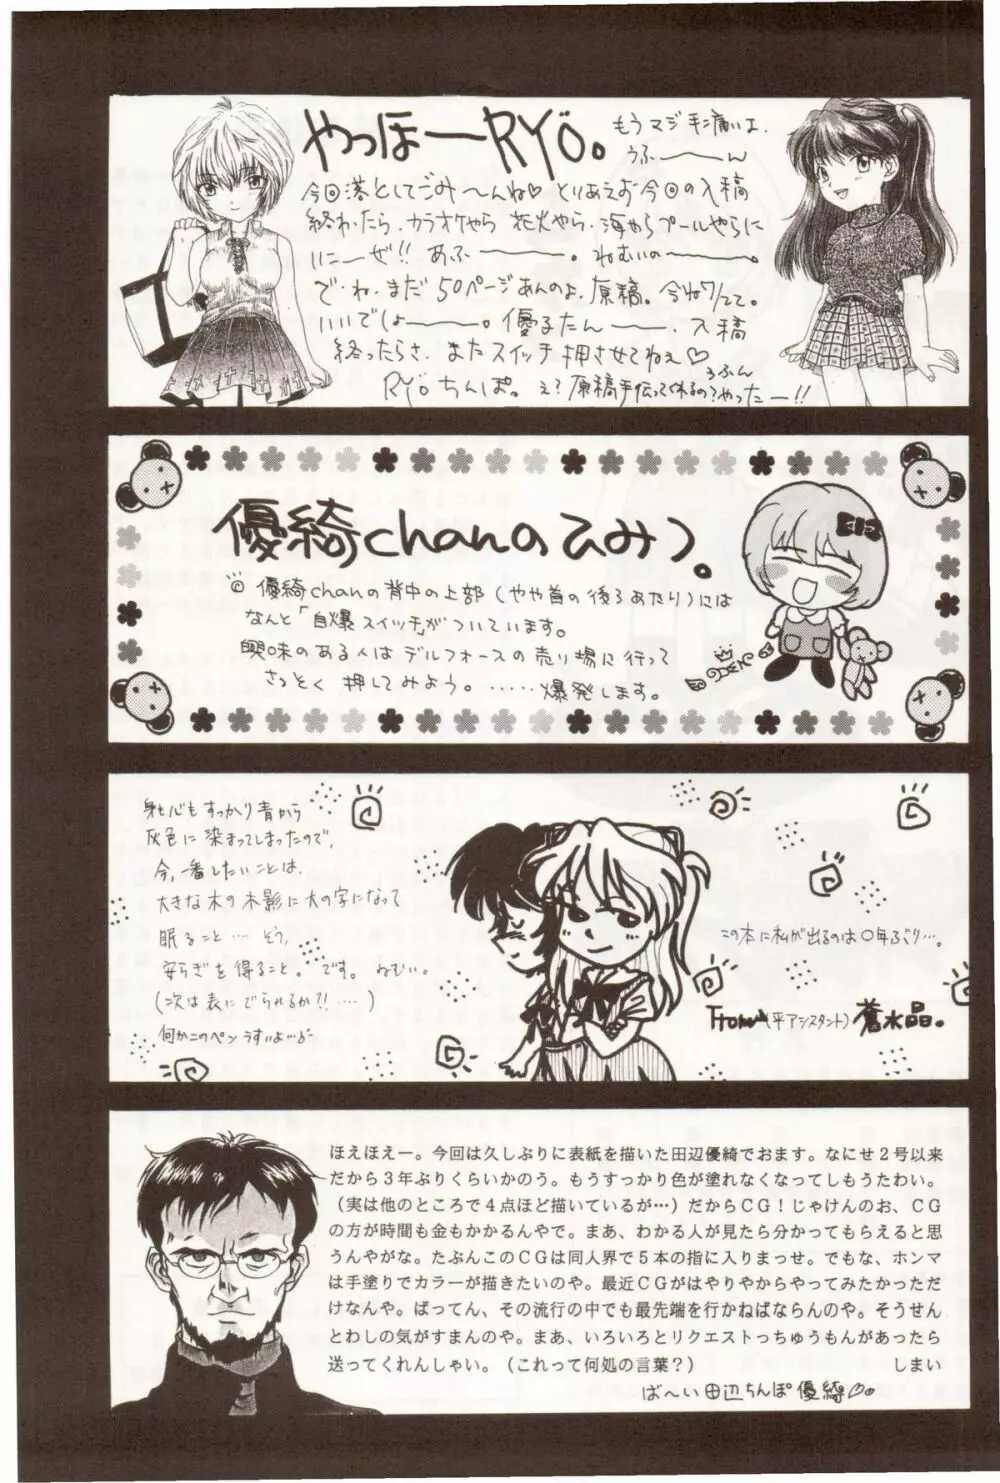 やっほーRYÖ。
もうマジ手痛いよ、
うふーーん
今回落としてごみーんね♡ とりあえず今回の入稿
終わったら、カラオケやら 花火やら、海やらプールやらに
いこーぜ!! あふーーー。ねむいのーーー。
で、ね、まだ50ページあんのよ、原稿。今ね7/22。
いいでしょーー。優るたんーー、入稿
終ったらさ、またスイッチ押させてねぇ♡
うふん
RYÖちんぽ。 え?原稿手伝ってくれるの?やったー!!
優綺chanのひみつ。
優綺chanの背中の上部(やや首の後ろあたり)には
なんと「自爆スイッチ」がついています。
興味のある人はデルフォースの売り場に行って
さっとく 押してみよう。……爆発します。
身も心もすっかり青から
灰色に染まってしまったので、
今、一番したいことは、
大きな木の木影に大の字になって
眠ること…そう、
安らぎを得ること。です。ねむい。
(次は表にでられるか?!…)
何かこのペンうすいよ…
この本に私が出るのは〇年ぶり…。
From(平アシスタント)蒼水晶。
ほえほえー。今回は久しぶりに表紙を描いた田辺優綺でおます。なにせ2号以来
だから3年ぶりくらいかのう。もうすっかり色が塗れなくなってしもうたわい。
(実は他のところで4点ほど描いているが…)だからCG!じゃけんのお、CG
の方が時間も金もかかるんやで。まあ、わかる人が見たら分かってもらえると思
うんやがな。たぶんこのCGは同人界で5本の指に入りまっせ。でもな、ホンマ
は手塗りでカラーが描きたいのや。最近CGがはやりやからやってみたかっただ
けなんや。ばってん、その流行の中でも最先端を行かねばならんのや。そうせん
とわしの気がすまんのや。まあ、いろいろとリクエストっちゅうもんがあったら
送ってくれんしゃい。(これって何処の言葉?) しまい
ば〜い 田辺ちんぽ優綺